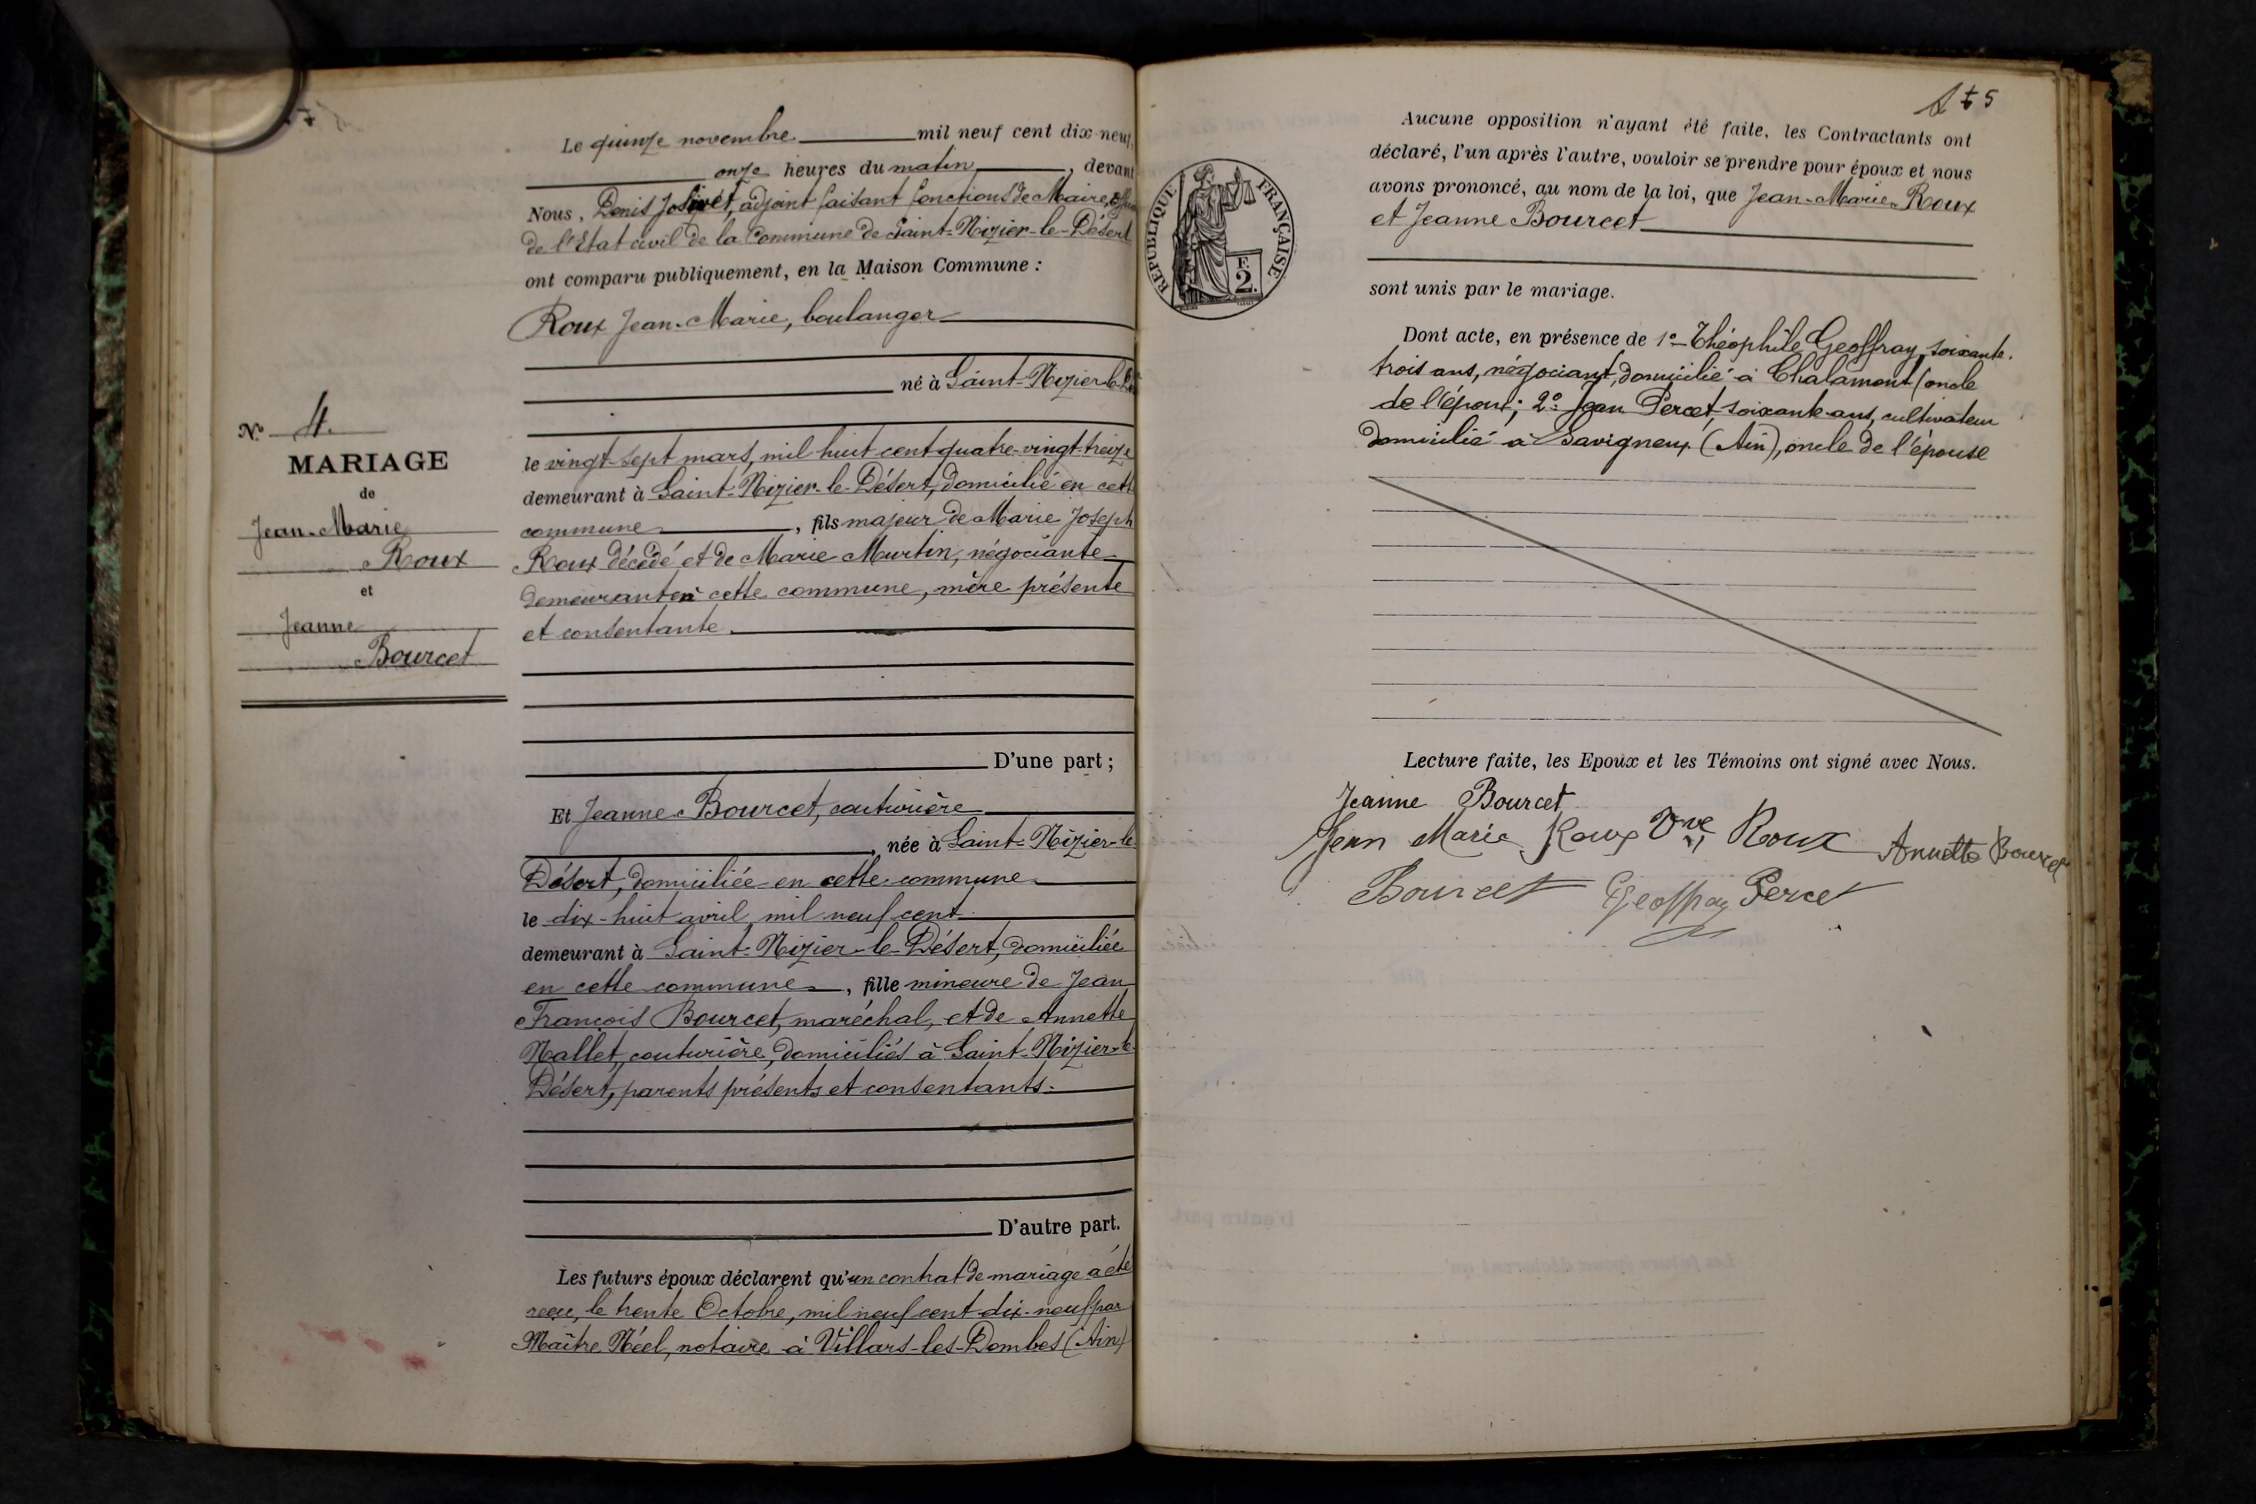 Le quinze novembre mil neuf cent dix-neuf,
onze heures du matin, devant
Nous, Denis Jolivet, adjoint faisant fonctions de Maire,
de l'Etat civil de la Commune de Saint-Nizier-le-Désert
ont comparu publiquement, en la Maison Commune :
Roux Jean-Marie, boulanger
né à Saint-Nizier-le-
le vingt-sept mars, mil huit cent quatre-vingt-treize
demeurant à Saint-Nizier-le-Désert, domicilié en cette
commune, fils majeur de Marie Joseph
Roux décédé et de Marie Murtin, négociante
demeurant en cette commune, mère présente
et consentante.
D'une part ;
Et Jeanne Bourcet, couturière
, née à Saint-Nizier-le-
Désert, domiciliée en cette commune
le dix-huit avril mil neuf cent
demeurant à Saint-Nizier-le-Désert, domiciliée
en cette commune, fille mineure de Jean
François Bourcet, maréchal, et de Annette
Nallet, couturière, domiciliés à Saint-Nizier-le-
Désert, parents présents et consentants.
D'autre part.
Les futurs époux déclarent qu'un contrat de mariage a été
reçu, le trente Octobre, mil neuf cent dix-neuf par
Maître Néel, notaire à Villars-les-Dombes (Ain)
N° 4.
MARIAGE
de
Jean-Marie
Roux
et
Jeanne
Bourcet
Aucune opposition n'ayant été faite, les Contractants ont
déclaré, l'un après l'autre, vouloir se prendre pour époux et nous
avons prononcé, au nom de la loi, que Jean-Marie Roux
et Jeanne Bourcet
sont unis par le mariage.
Dont acte, en présence de 1°- Théophile Geoffray, soixante-
trois ans, négociant, domicilié à Chalamont (oncle
de l'époux; 2° Jean Percet, soixante ans, cultivateur
domicilié à Savigneux (Ain), oncle de l'épouse
Lecture faite, les Epoux et les Témoins ont signé avec Nous.
Jeanne Bourcet
Jean Marie Roux Vve Roux Annette Bourcet
Bourcet Geoffray Percet
RÉPUBLIQUE FRANÇAISE
F.
2.